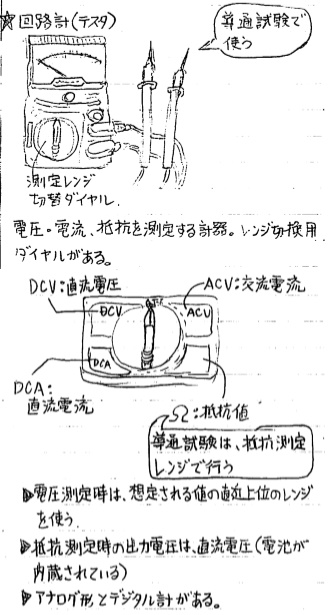 ☆回路計(テスタ)
導通試験で
使う
測定レンジ
切替ダイヤル
電圧・電流、抵抗を測定する計器。レンジ切換用
ダイヤルがある。
DCV:直流電圧
ACV:交流電流
DCV
ACV
DCA
DCA:
直流電流
Ω:抵抗値
導通試験は、抵抗測定
レンジで行う
▷電圧測定時は、想定される値の直近上位のレンジ
を使う.
▷抵抗測定時の出力電圧は、直流電圧(電池が
内蔵されている)
▷アナログ形とデジタル計がある。